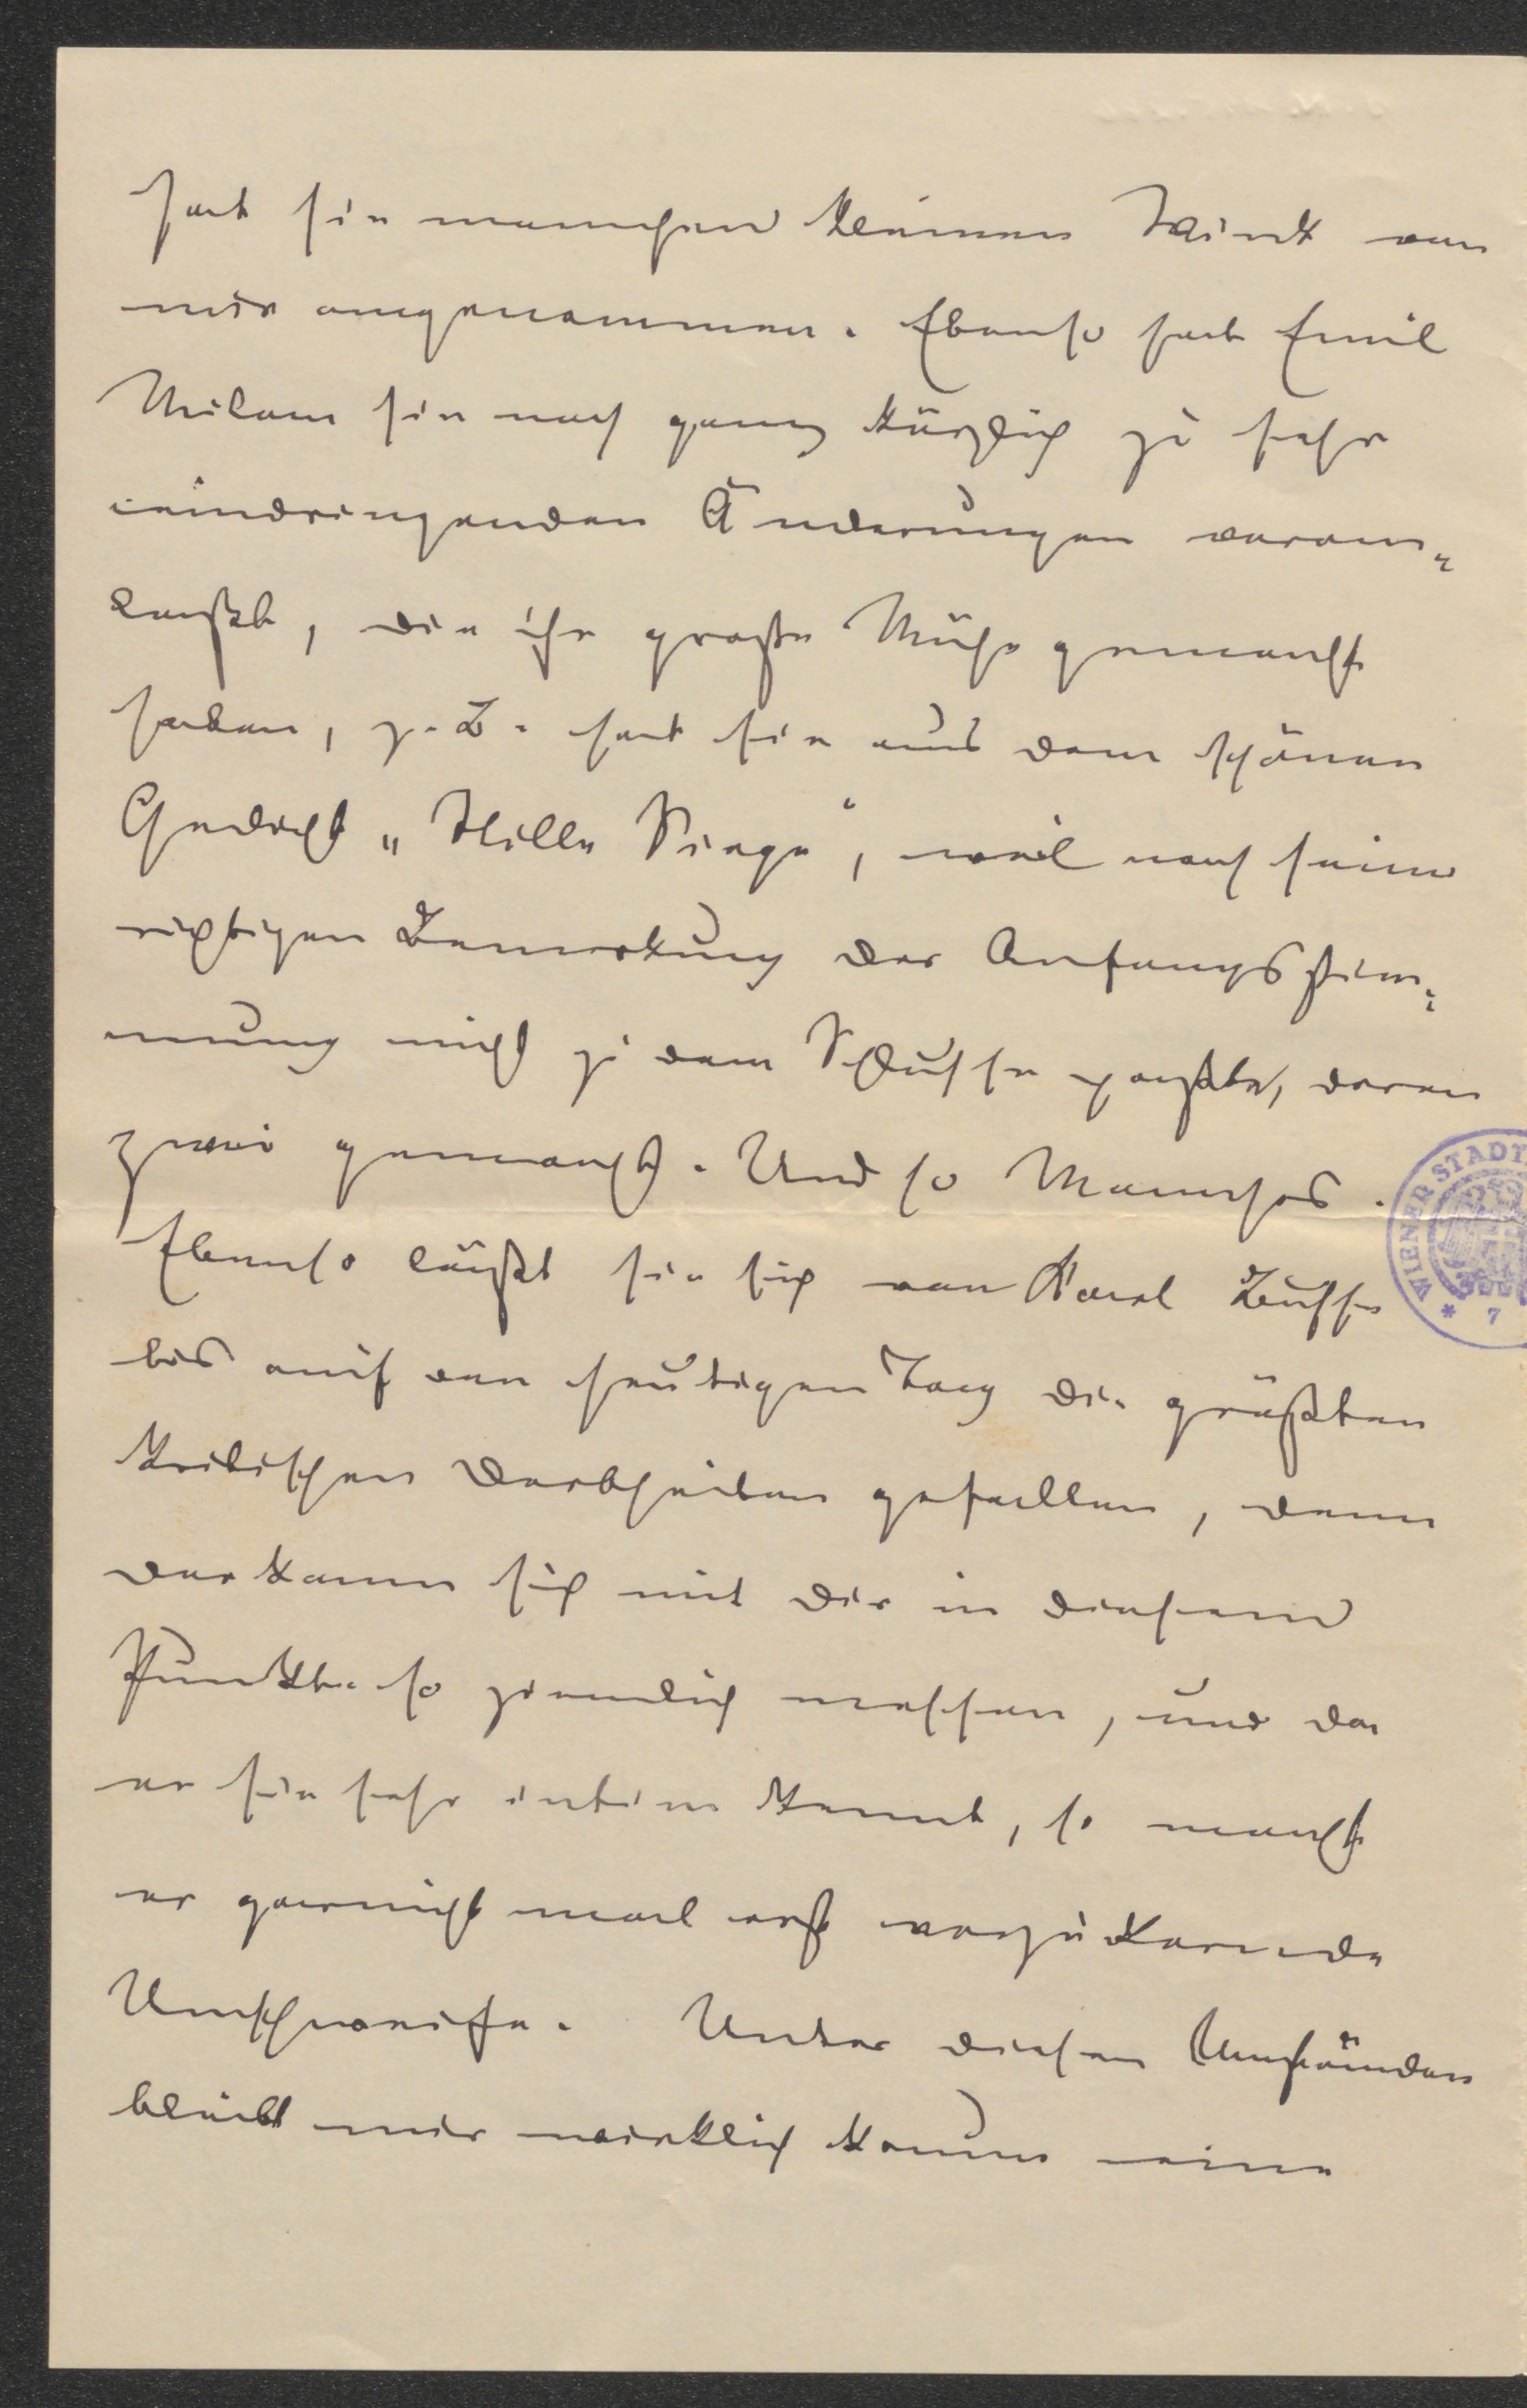 hat sie manchen kleinen Wink von
mir angenommen. Ebenso hat Emil
Milan sie noch ganz kürzlich zu sehr
eindringenden Änderungen veran-
laßt, die ihr große Mühe gemacht
haben, z. B. hat sie aus dem schönen
Gedicht „Stille Siege“, weil nach seiner
richtigen Bemerkung der Anfangsstim-
mung nicht zu dem Schlusse paßte, deren
zwei gemacht. Und so Manches.
Ebenso läßt sie sich von Karl Busse
bis auf den heutigen Tag die größten
kritischen Derbheiten gefallen, denn
der kann sich mit Dir in diesem
Punkte so ziemlich messen, und da
er sie sehr intim kennt, so macht
er garnicht mal erst verzuckernde
Umschweife. Unter diesen Umständen
bleibt mir wirklich kaum eine
WIENER STADT
* 7